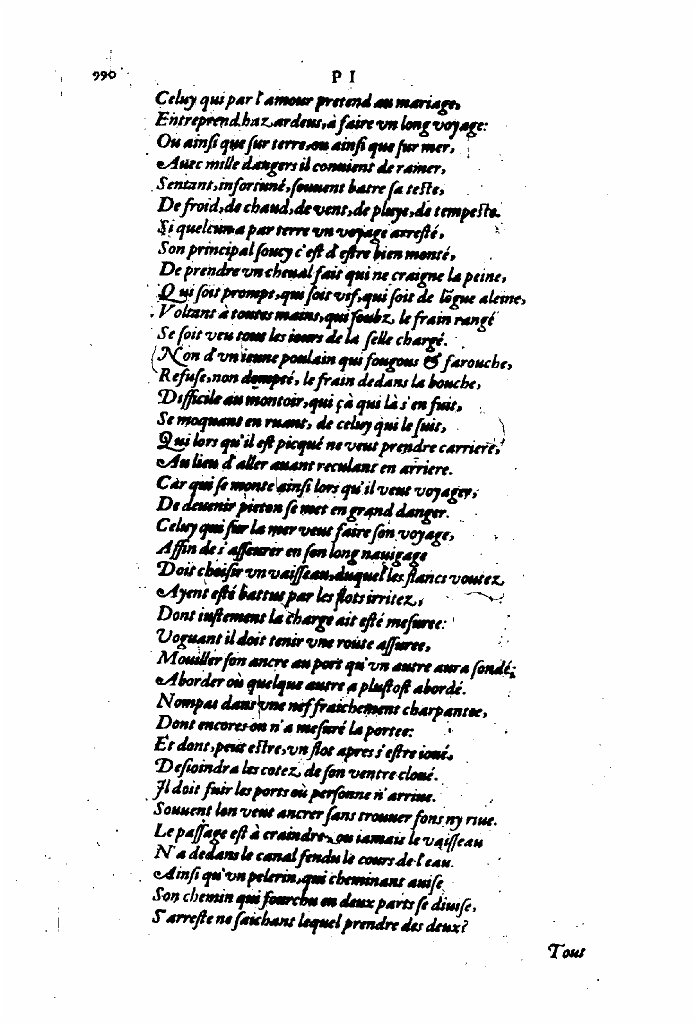 990
P I
Celuy qui par l'amour pretend au mariage,
Entreprend hazardeus, à faire vn long voyage:
Ou ainsi que sur terre, ou ainsi que sur mer,
Auec mille dangers il conuient de ramer,
Sentant, infortuné, souuent batre sa teste,
De froid, de chaud, de vent, de pluye, de tempeste.
Si quelcun a par terre vn voyage arresté,
Son principal soucy c'est d'estre bien monté,
De prendre vn cheual fait qui ne craigne la peine,
Qui soit prompt, qui soit vif, qui soit de lõgue aleine,
Voltant à toutes mains, qui soubz le frain rangé
Se soit veu tous les iours de la selle chargé.
Non d'vn ieune poulain qui fougous & farouche,
Refuse, non dompté, le frain dedans la bouche,
Difficile au montoir, qui çà qui là s'en fuit,
Se moquant en ruant, de celuy qui le suit,
Qui lors qu'il est picqué ne veut prendre carriere,
Au lieu d'aller auant reculant en arriere.
Car qui se monte ainsi lors qu'il veut voyager,
De deuenir pieton se met en grand danger.
Celuy qui sur la mer veut faire son voyage,
Affin de s'asseurer en son long nauigage
Doit choisir vn vaisseau, duquel les flancs voutez,
Ayent esté battus par les flots irritez,
Dont iustement la charge ait esté mesuree:
Voguant il doit tenir vne route assuree,
Mouiller son ancre au port qu'vn autre aura sondé;
Aborder où quelque autre a plustost abordé.
Nompas dans vne nef fraichement charpantee,
Dont encores on n'a mesuré la portee:
Et dont, peut estre, vn flot apres s'estre ioué,
Desioindra les cotez de son ventre cloué.
Il doit fuir les ports où personne n'arriue.
Souuent lon veut ancrer sans trouuer fons ny riue.
Le passage est à craindre, ou iamais le vaisseau
N'a dedans le canal fendu le cours de l'eau.
Ainsi qu'vn pelerin, qui cheminant auise
Son chemin qui fourchu en deux parts se diuise,
S'arreste ne saichant lequel prendre des deux?
Tout